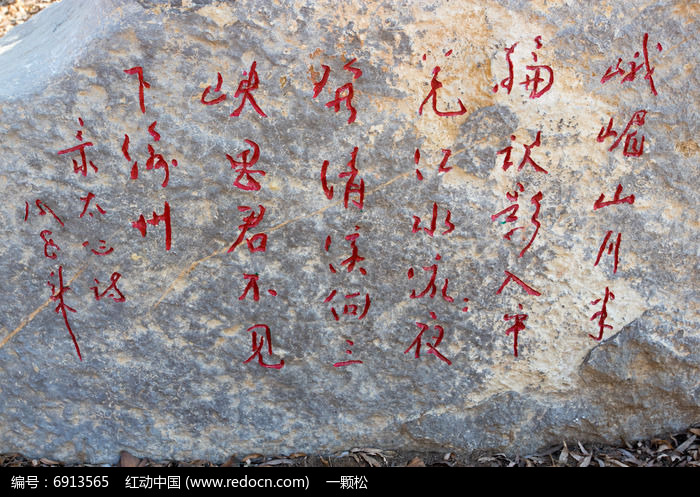 峨嵋山月半
輪秋影入平
羌江水流夜
發清溪向三
峡思君不见
下渝州
录太白诗
编号：6913565 红动中国 (www.redocn.com) 一颗松